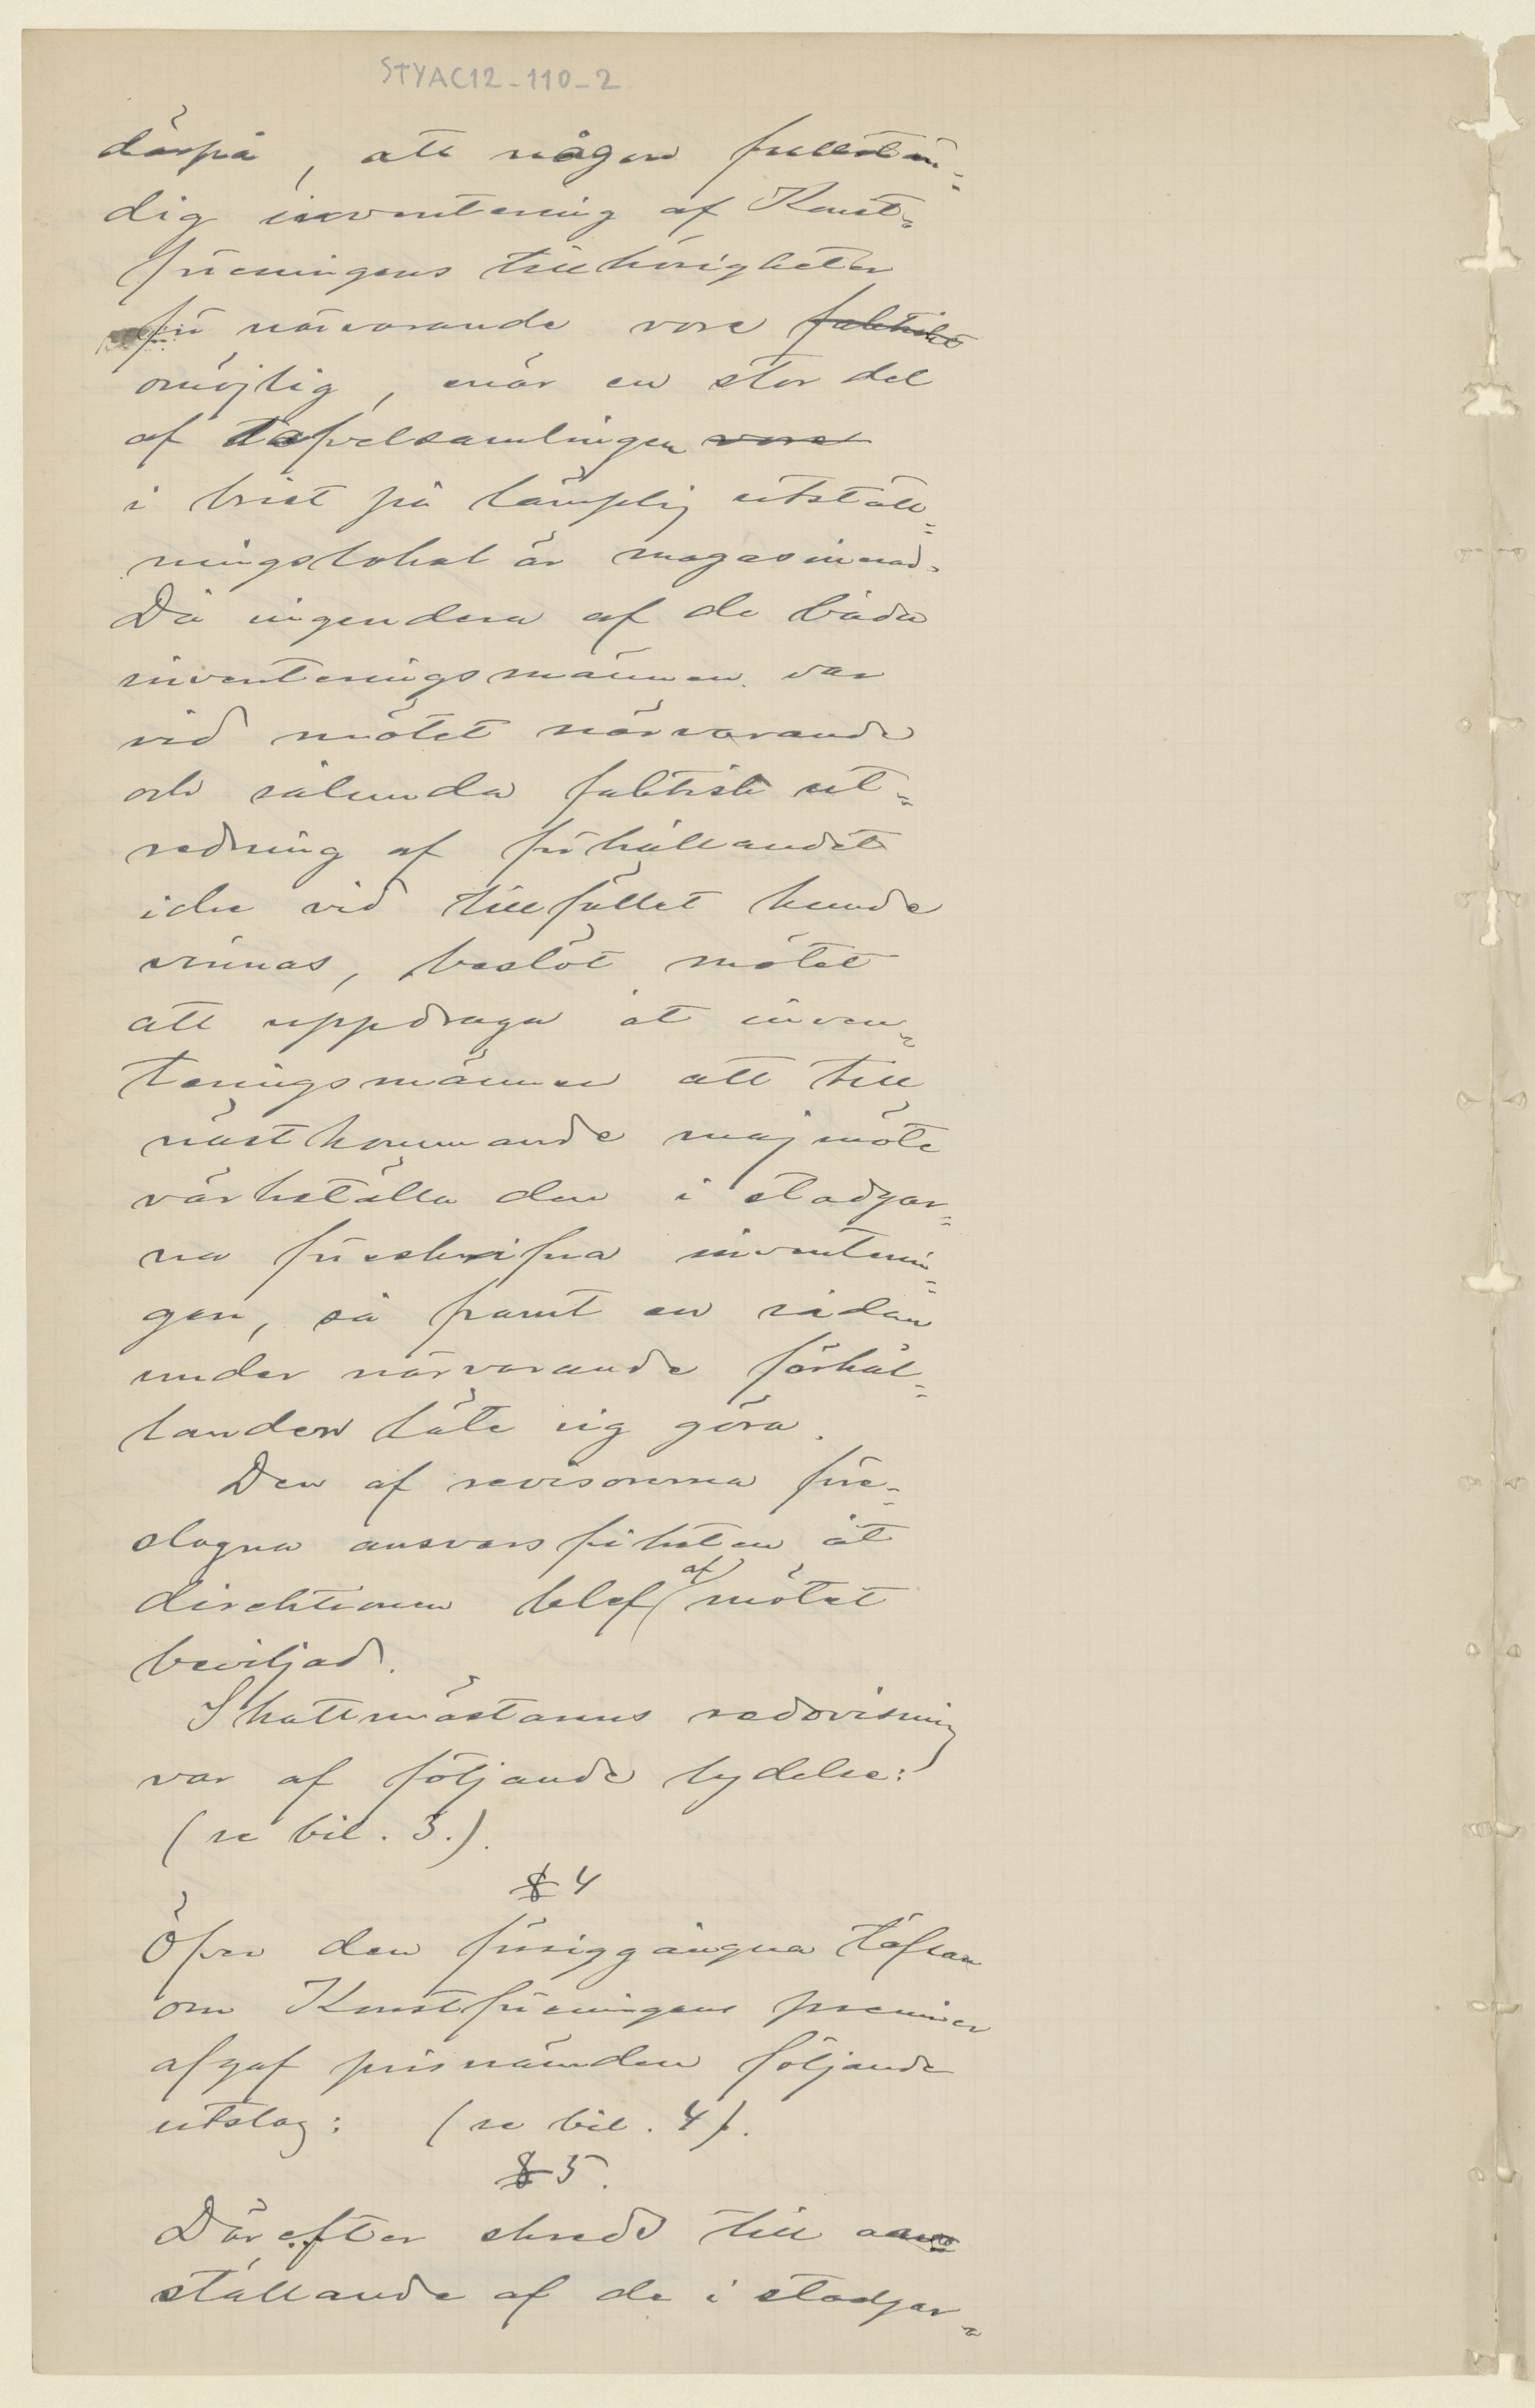 STYAC12-110-2
därpå, att någon fullstän-
dig inventering af Konst-
föreningens tillhörigheter
för närvarande vore faktiskt
omöjlig, enär en stor del
af tafvelsamlingen vore
i brist på lämplig utställ-
ningslokal är magasinerad.
Då ingendera af de båda
inventeringsmännen var
vid mötet närvarande
och sålunda faktisk ut-
redning af förhållandet
icke vid tillfället kunde
vinnas, beslöt mötet
att uppdraga åt inven-
teringsmännen att till
nästkommande majmöte
värkställa den i stadgar-
na föreskrifna inventerin-
gen, så framt en sådan
under närvarande förhål-
landen läte sig göra.
Den af revisorerna före-
slagna ansvarsfriheten åt
direktionen blef af mötet
beviljad.
Skattmästarens redovisning
var af följande lydelse:
(se bil. 3.).
§ 4
Öfver den försiggångna täflan
om Konstföreningens premier
afgaf prisnämnden följande
utslag: (se bil. 4).
§ 5.
Därefter skreds till an-
ställande af de i stadgar-